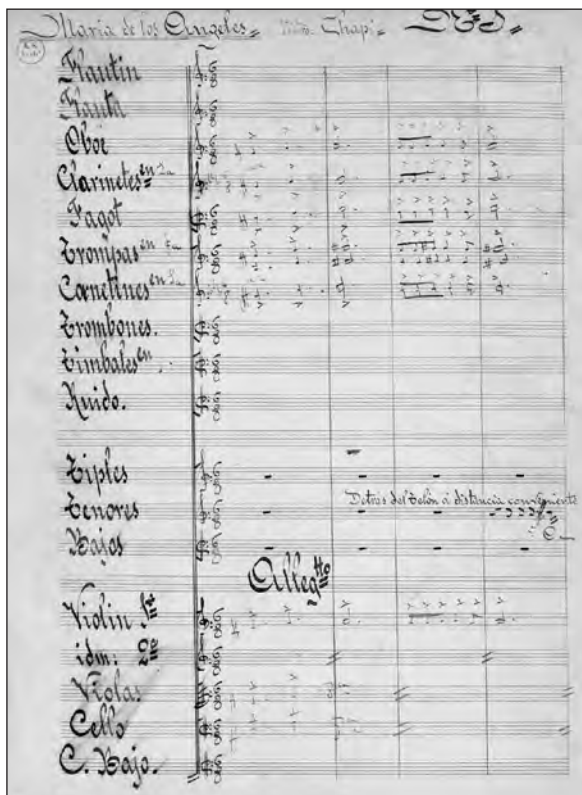 María de los Angeles. Mtro. Chapí.
Flautin
Flauta
Oboe
Clarinetes en La
Fagot
Trompas en Fa
Cornetines en La
Trombones.
Timbales en
Ruido.
Tiples
Detrás del Telón á distancia conveniente
Tenores
Bajos
Alleg.tto
Violin 1º
idm: 2º
Violas.
Cello
C. Bajo.